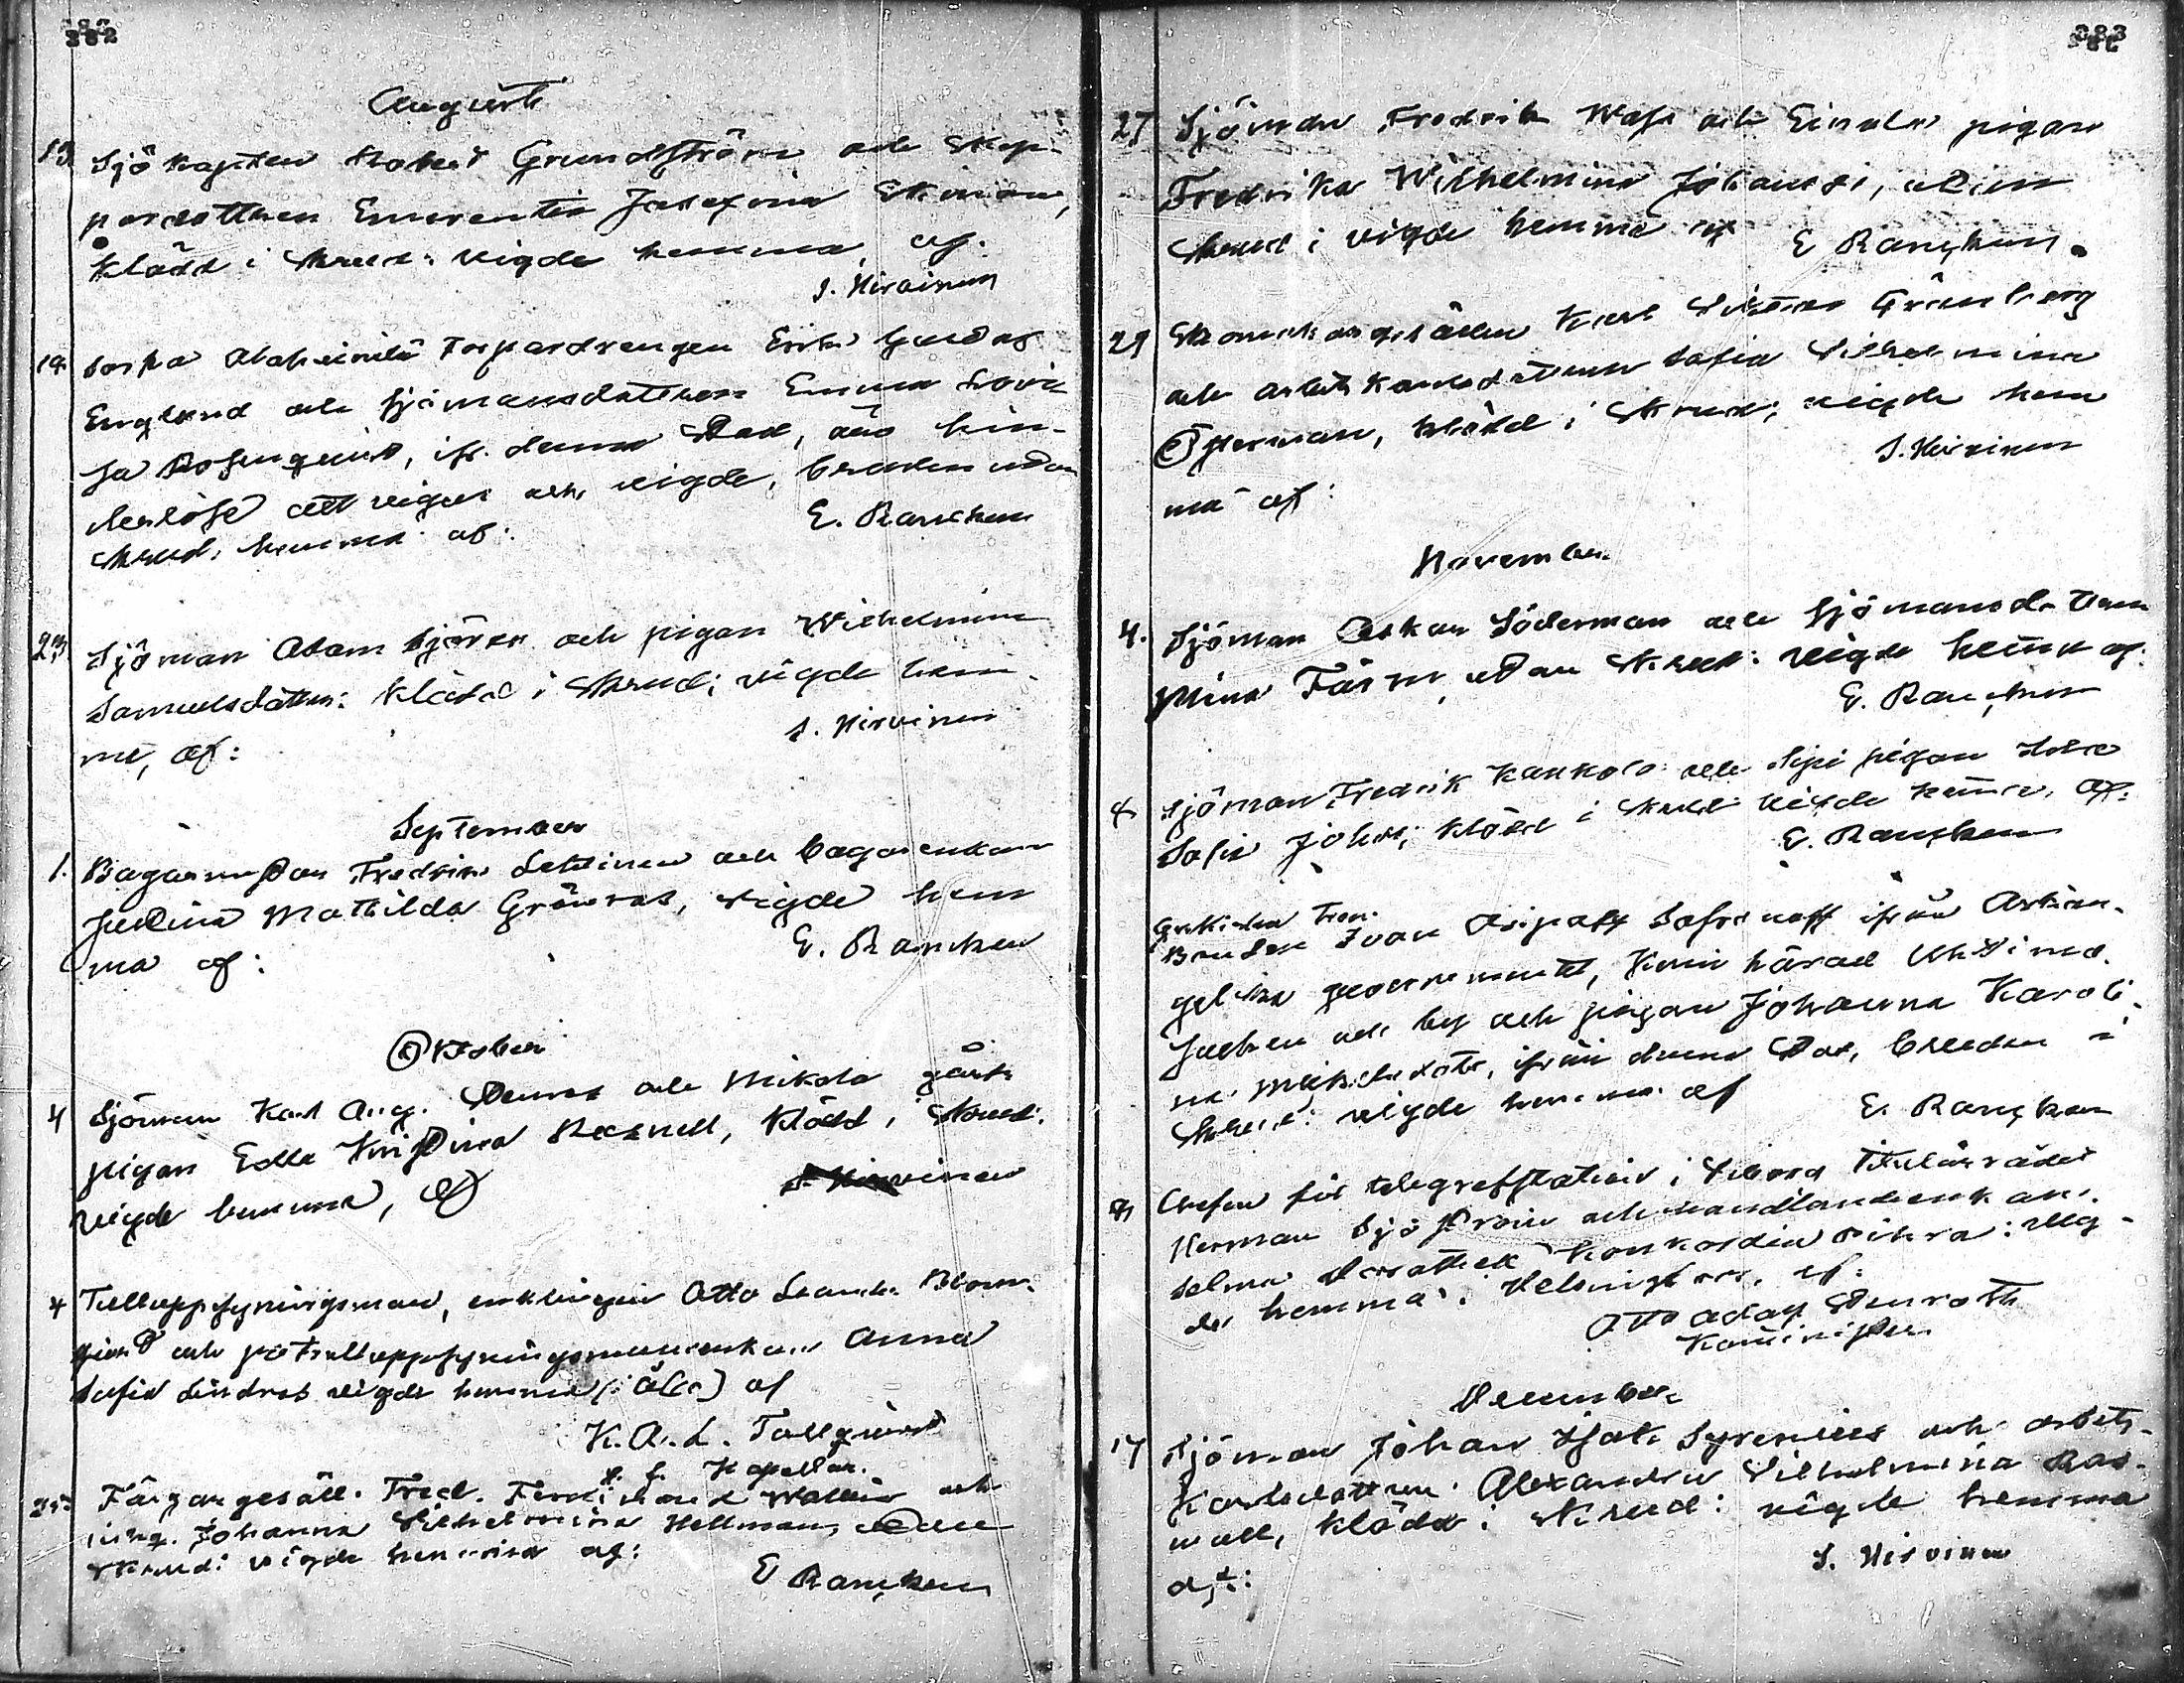 382
Augusti
13 Sjökapten Robert Grundström och Skep-
paredottren Emerentia Josefina Ekman,
klädd i skrud: vigde hemma, af:
I. Hirvinen
19. Torpardrengen Erik Gustaf
Englund och sjömansdottren Emma Lovi-
sa Rosenqvist, ifr. denna stad, äro hin-
derlöse att vigas och vigde, bruden utan
skrud, hemma af:
E. Rancken
23 Sjöman Adam Sjöros och pigan Wilhelmina
Samuelsdotter: klädd i skrud; vigde hem-
ma, af:
I. Hirvinen
September
1. Fredrik Lehtinen och bagareenkan
Justina Mathilda Grönroos, vigde hem
ma af:
E. Rancken
Oktober
4 Sjöman Karl Aug. och Nikola gårds
pigan Edla Kristina klädd i skrud:
vigde hemma, af
I. Hirvinen
4 Tulluppsyningsman, enklingen Otto Leander Blom-
qvist och Tulluppsyningsmanenkan Anna
Sofia Lindroos vigde hemma (i Åbo) af
K. A. L. Tallqvist
v. t. Kapellan.
25 Färgaregesäll. Fred. Ferdinand Wallin och
jungf. Johanna Vilhelmina Hellman, utan
skrud: vigde hemma af:
E Rancken
383
27 Sjöman Fredrik Wass och pigan
Fredrika Wilhelmina Johansd:, utan
skrud: vigde hemma af E Rancken.
29 Karl Viktor Grönberg
och arbetskarlsdottren Sofia Vilhelmina
Österman, klädd i skrud; vigde hem
ma af:
I. Hirvinen
November.
4. Sjöman Oskar Söderman och sjömansdottren
Mina Färm, utan skrud: vigde hemma af:
E. Rancken
8 Sjöman Fredrik Kaukola och pigan
Sofia Johansd; klädd i skrud: vigde hemma, af:
E. Rancken
Grekiska tros.
Bonden Ivan Osipoff Safronoff ifrån Arkan-
gelska guvernementet, Kemi härad
och by och pigan Johanna Karoli-
na Mikelsdotr, ifrån denna stad, bruden i
skrud: vigde hemma af
E. Rancken
9, Chefen för telegrafstation i Viborg Titulärrådet
Herman Sjöström och handlandeenkan
Selma Dorothea Konkordia Pihra: vig-
de hemma i Helsingfors, af:
Otto Adolf Stenroth
Kominister.
December
17 Sjöman Johan Isak Syrenius och arbets-
karlsdottren Alexandra Vilhelmina Ros-
wall, klädd i skrud: vigde hemma
af:
I. Hirvinen